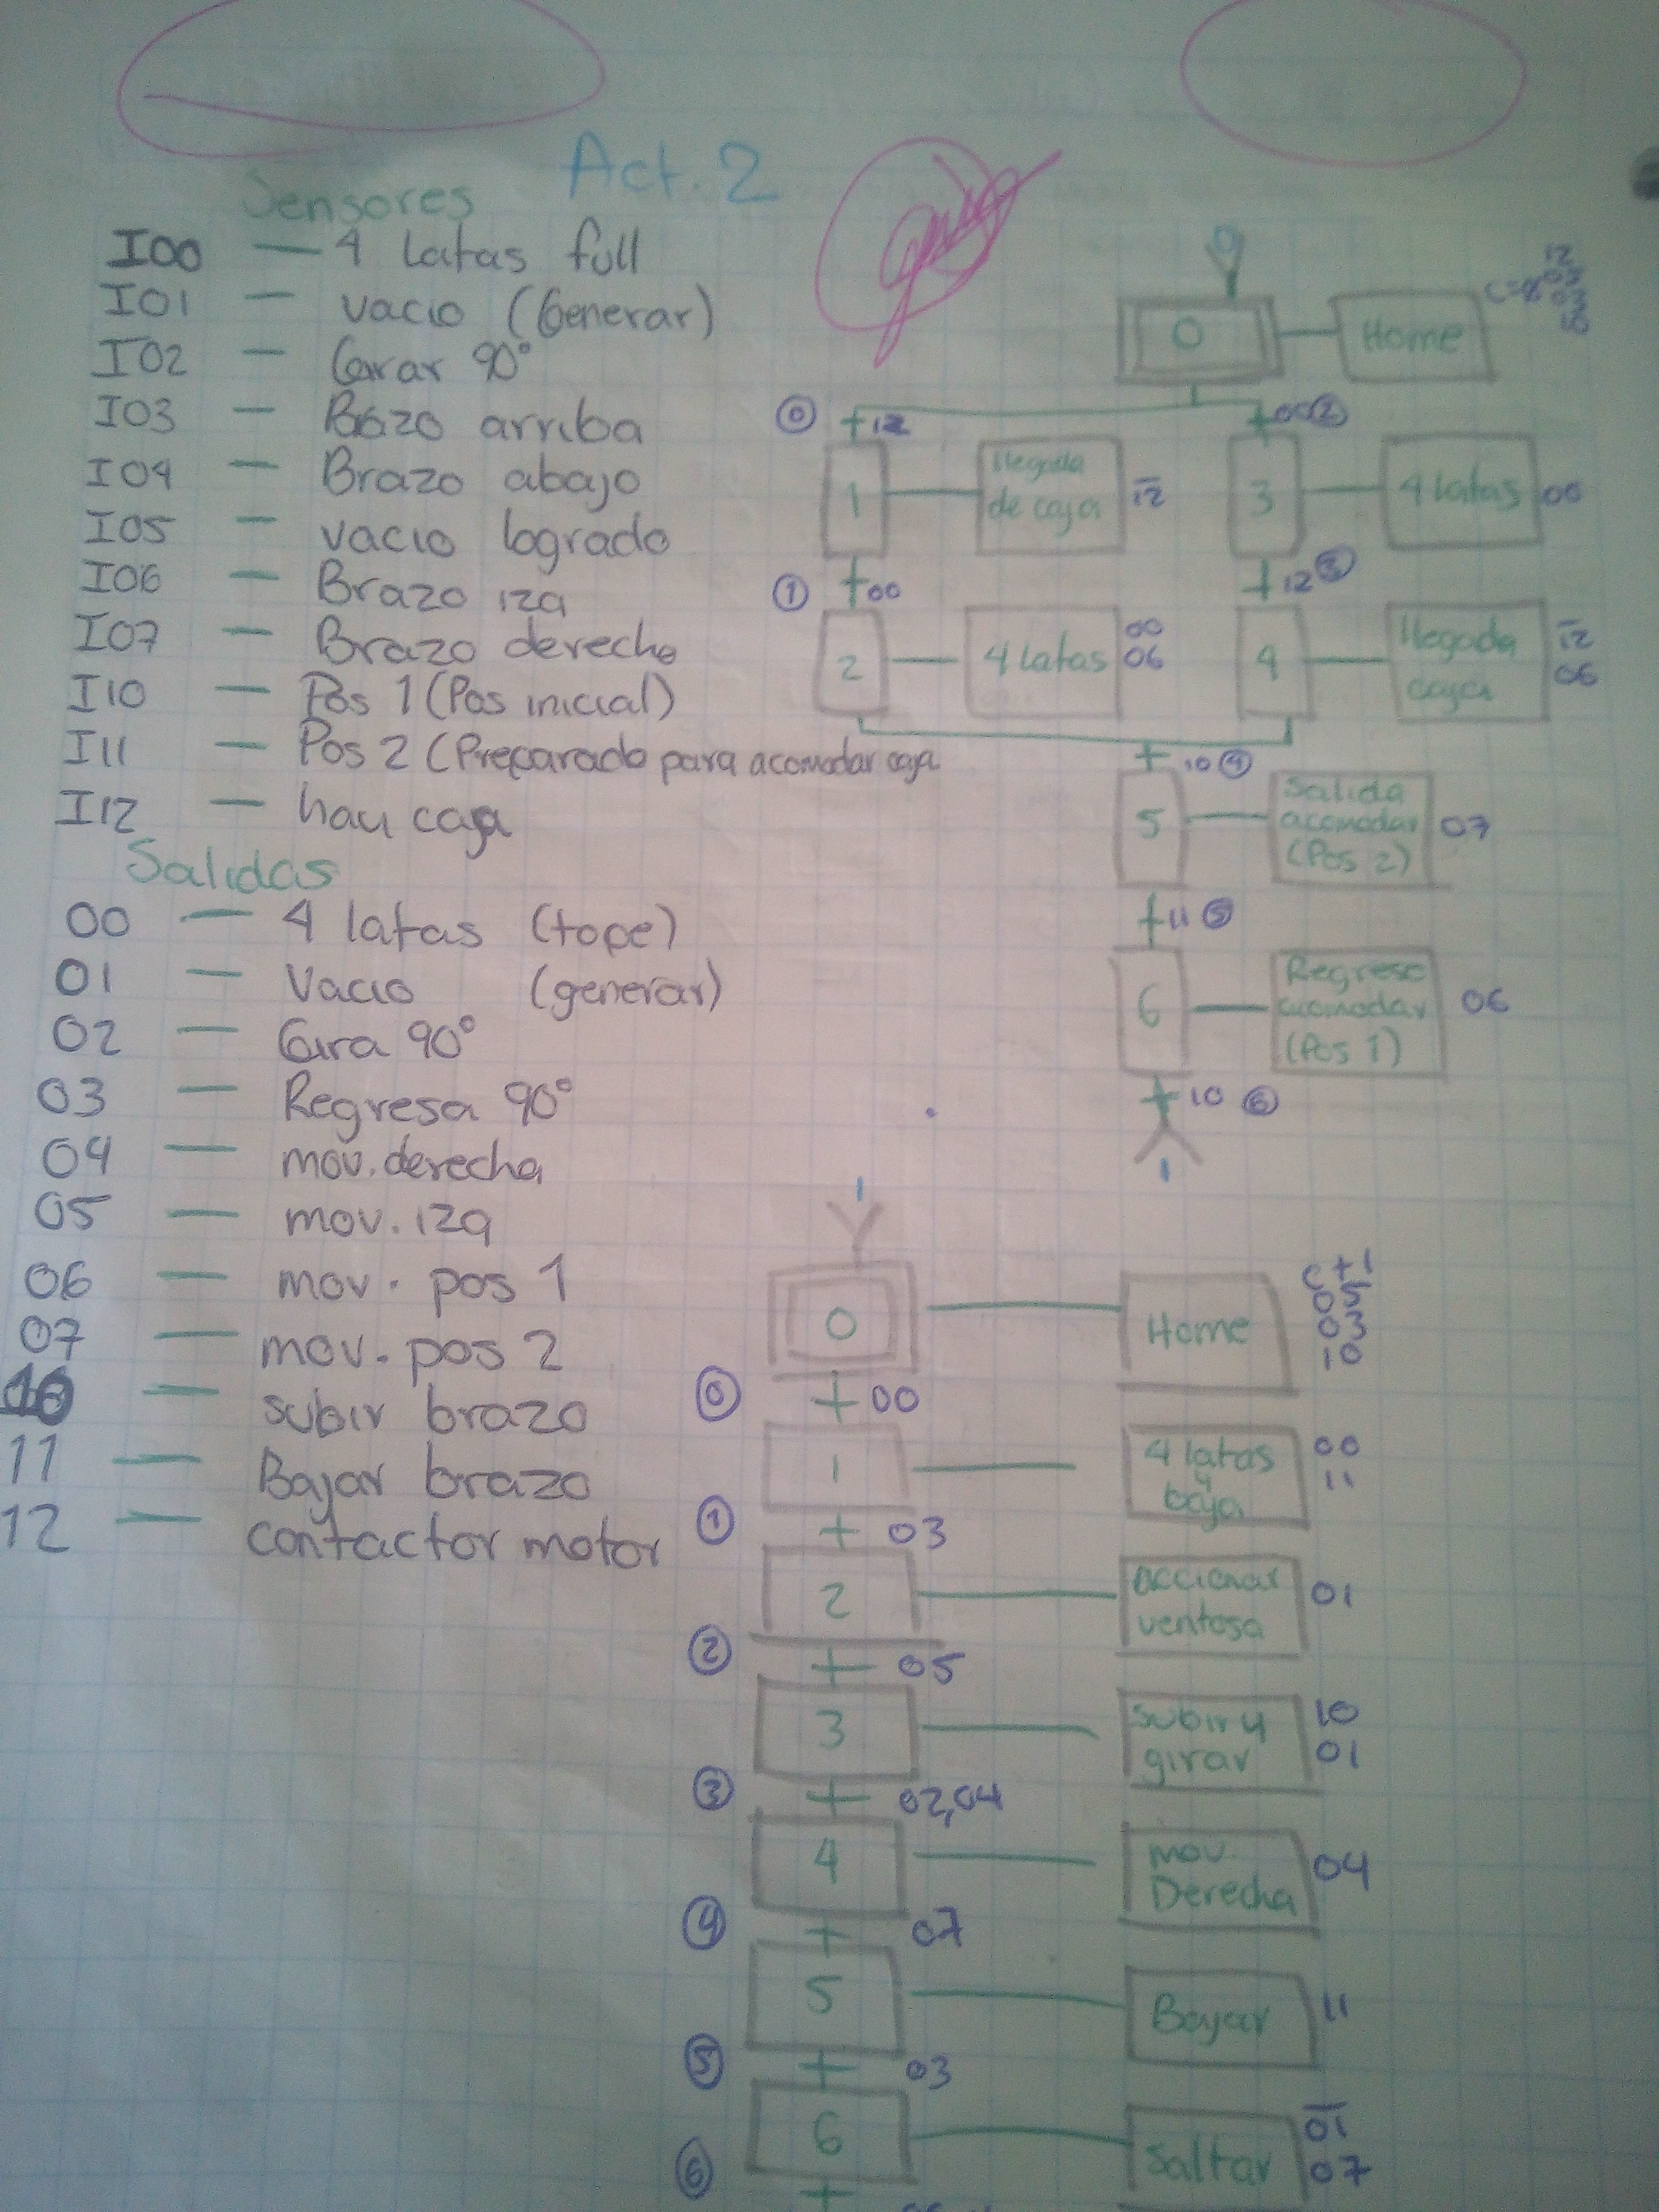 Act. 2
Sensores
I00 — 4 latas full
I01 — vacio (Generar)
I02 — Girar 90°
I03 — Brazo arriba
I04 — Brazo abajo
I05 — vacio logrado
I06 — Brazo izq
I07 — Brazo derecho
I10 — Pos 1 (Pos inicial)
I11 — Pos 2 (Preparado para acomodar caja
I12 — hay caja
Salidas
00 — 4 latas (tope)
01 — Vacio (generar)
02 — Gira 90°
03 — Regresa 90°
04 — mov. derecha
05 — mov. izq
06 — mov. pos 1
07 — mov. pos 2
10 — subir brazo
11 — Bajar brazo
12 — contactor motor
0
0 Home
12
0 12
00 2
1 llegada
de caja
12
3 4 latas 00
1 00
12 3
2 4 latas
00
06
4 llegada
caja
12
06
10 4
5 Salida
acomodar
(Pos 2)
07
11 5
6 Regreso
acomodar
(Pos 1)
06
10 6
1
1
0 Home
C+1
05
03
10
0 00
1 4 latas
y
baja
00
11
1 03
2 accionar
ventosa
01
2 05
3 subir y
girar
10
01
3 02,04
4 mov.
Derecha
04
4 07
5 Bajar 11
5 03
6 Saltar
01
07
6